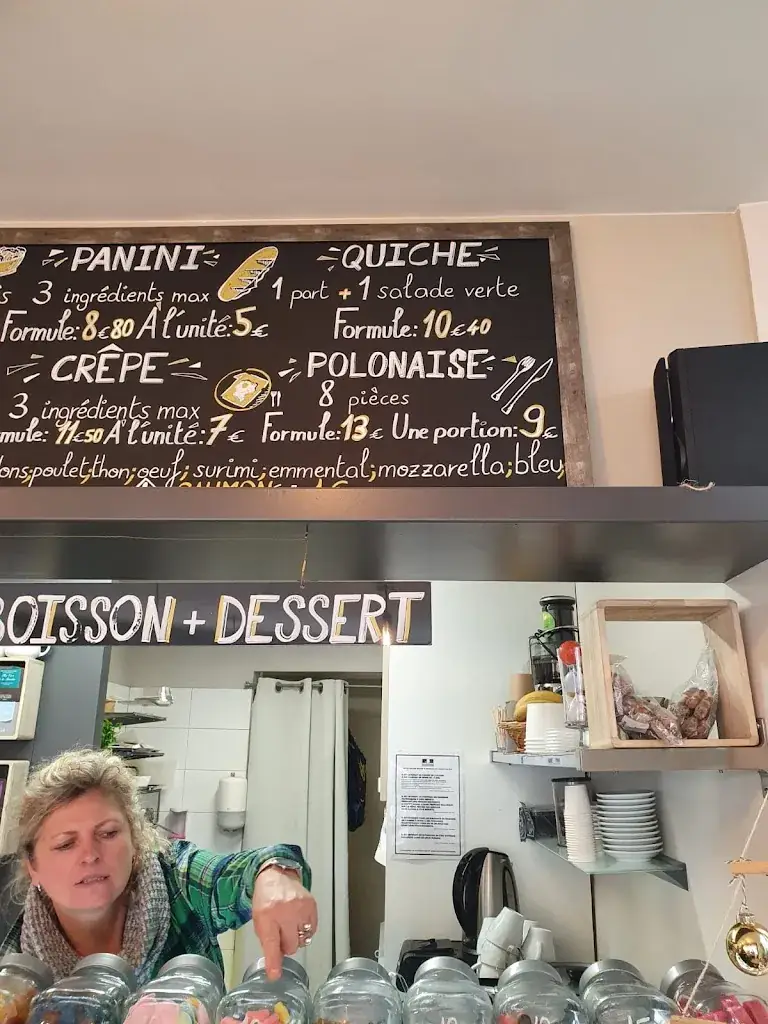 PANINI
QUICHE
3 ingrédients max
1 part + 1 salade verte
Formule: 8€80 À l'unité: 5€
Formule: 10€40
CRÊPE
POLONAISE
3 ingrédients max
8 pièces
mule: 11€50 À l'unité: 7€
Formule: 13€ Une portion: 9€
ons;poulet;thon;oeuf; surimi;emmental;mozzarella;bleu
BOISSON + DESSERT